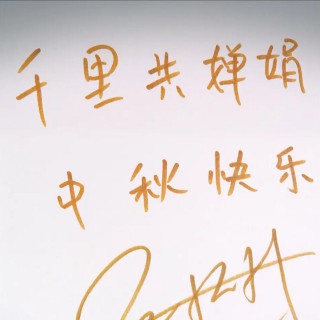 千里共婵娟
中秋快乐